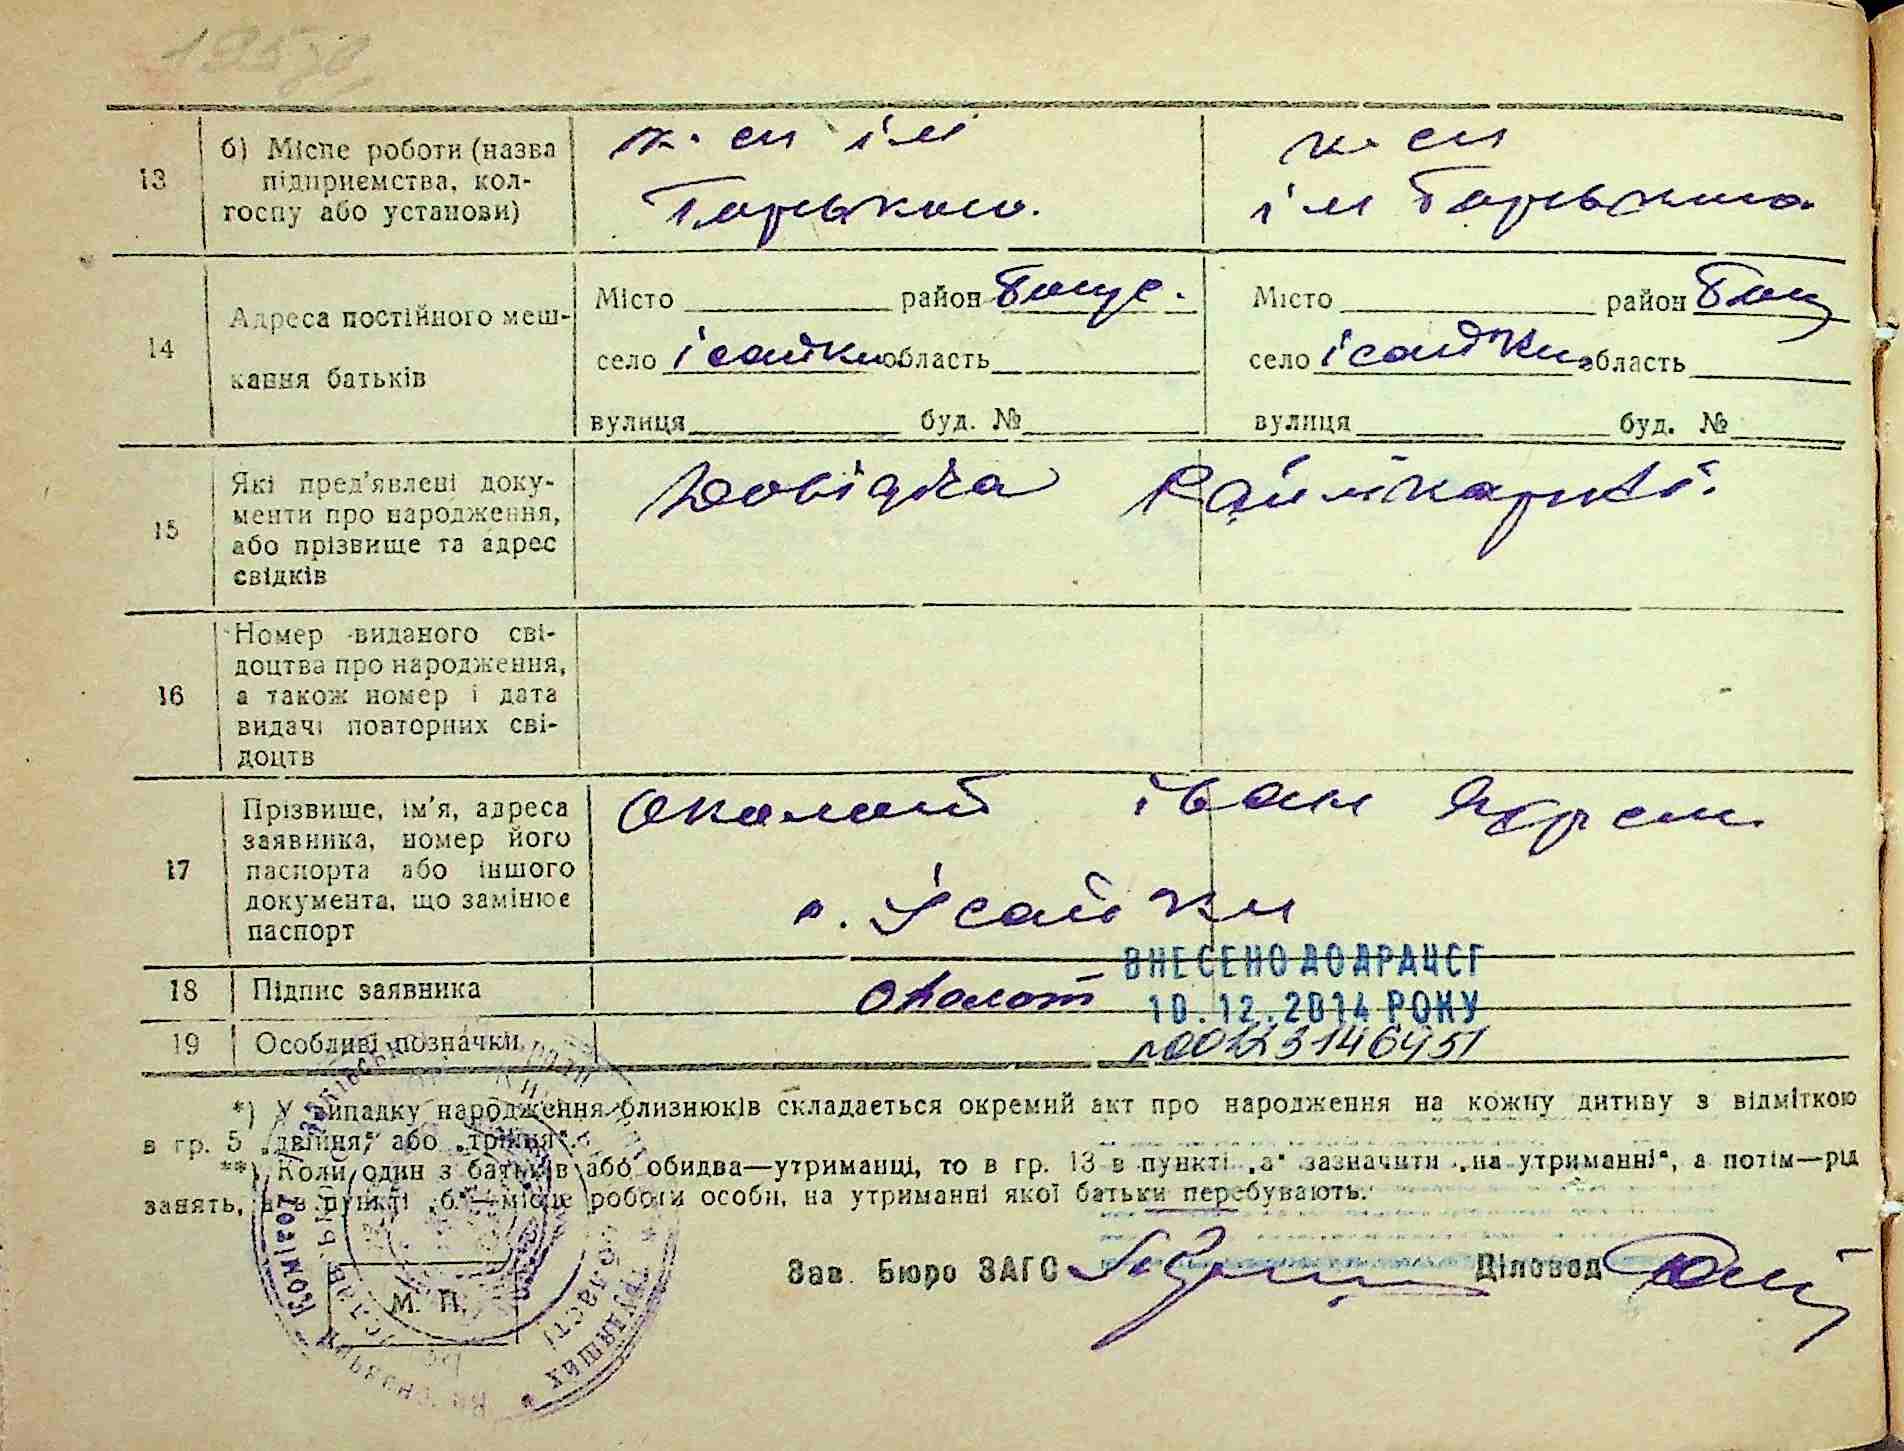 13
б) Місце роботи (назва
підприємства, кол-
госпу або установи)
к-сп ім
Горького.
к-сп
ім Горького
14
Адреса постійного меш-
кання батьків
Місто район Богус.
село Ісайки область
вулиця буд. №
Місто район Богу
село Ісайки область
вулиця буд. №
15
Які пред'явлені доку-
менти про народження,
або прізвище та адрес
свідків
Довідка
16
Номер виданого сві-
доцтва про народження,
а також номер і дата
видачі повторних сві-
доцтв
17
Прізвище, ім'я, адреса
заявника, номер його
паспорта або іншого
документа, що замінює
паспорт
Околот Іван
с. Ісайки
18
Підпис заявника
Околот
ВНЕСЕНО ДО ДРАЦСГ
10.12.2014 РОКУ
19
Особливі позначки
№00123146951
*) У випадку народження близнюків складається окремий акт про народження на кожну дитину з відміткою
в гр. 5 „двійня“ або „трійня“.
**) Коли один з батьків або обидва—утриманці, то в гр. 13 в пункті „а“ зазначити „на утриманні“, а потім—рід
занять, а в пункті „б“—місце роботи особи, на утриманні якої батьки перебувають.
Зав. Бюро ЗАГС
Діловод
М. П.